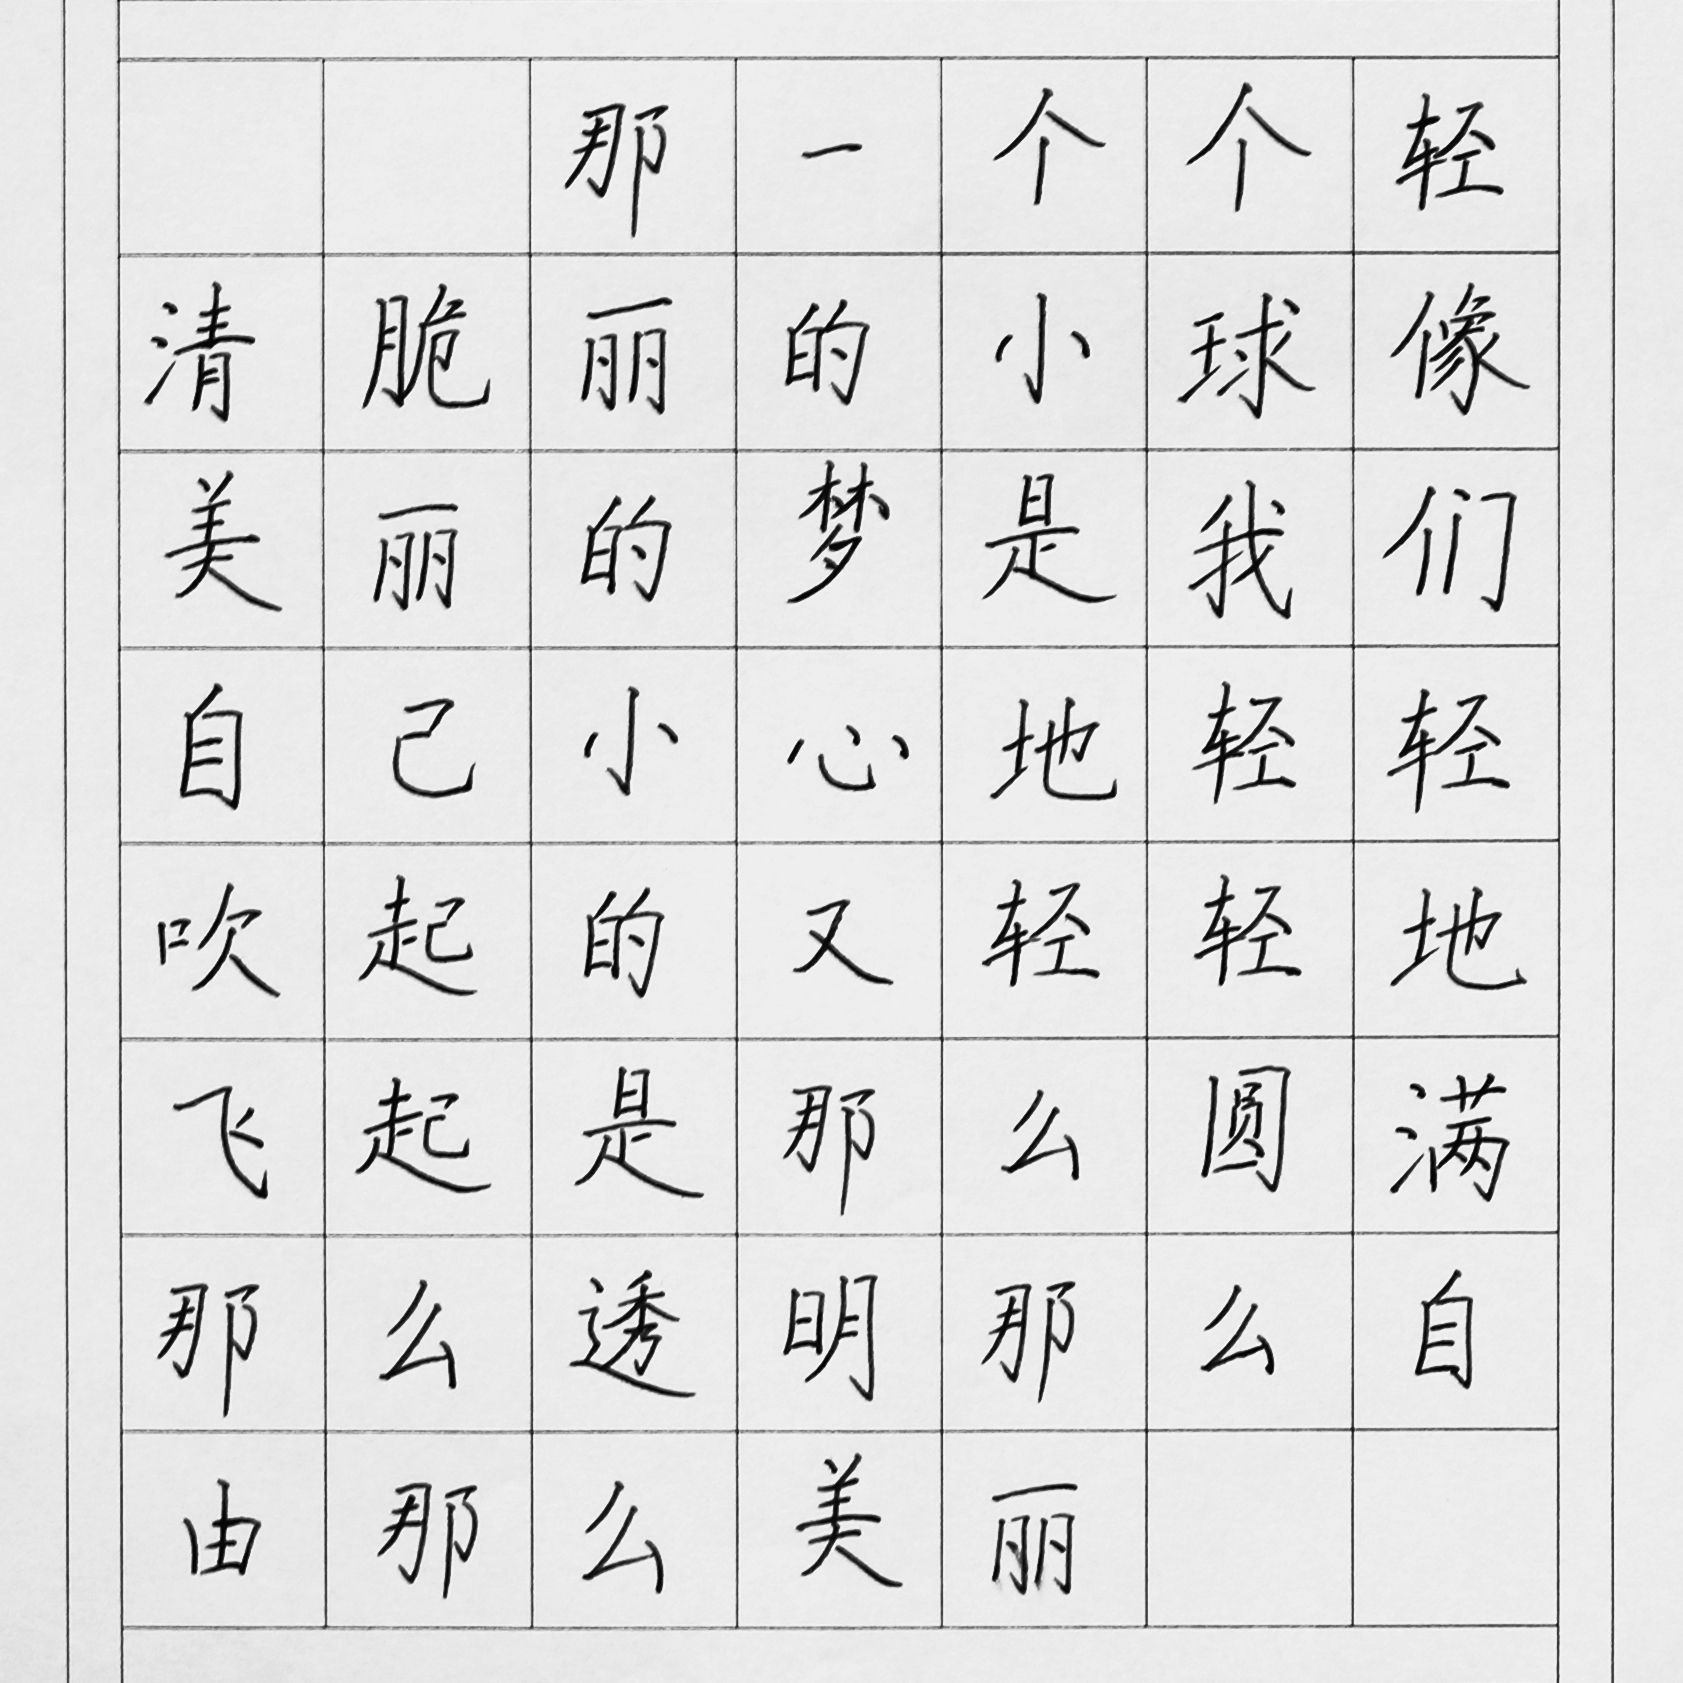 那一个个轻
清脆丽的小球像
美丽的梦是我们
自己小心地轻轻
吹起的又轻轻地
飞起是那么圆满
那么透明那么自
由那么美丽